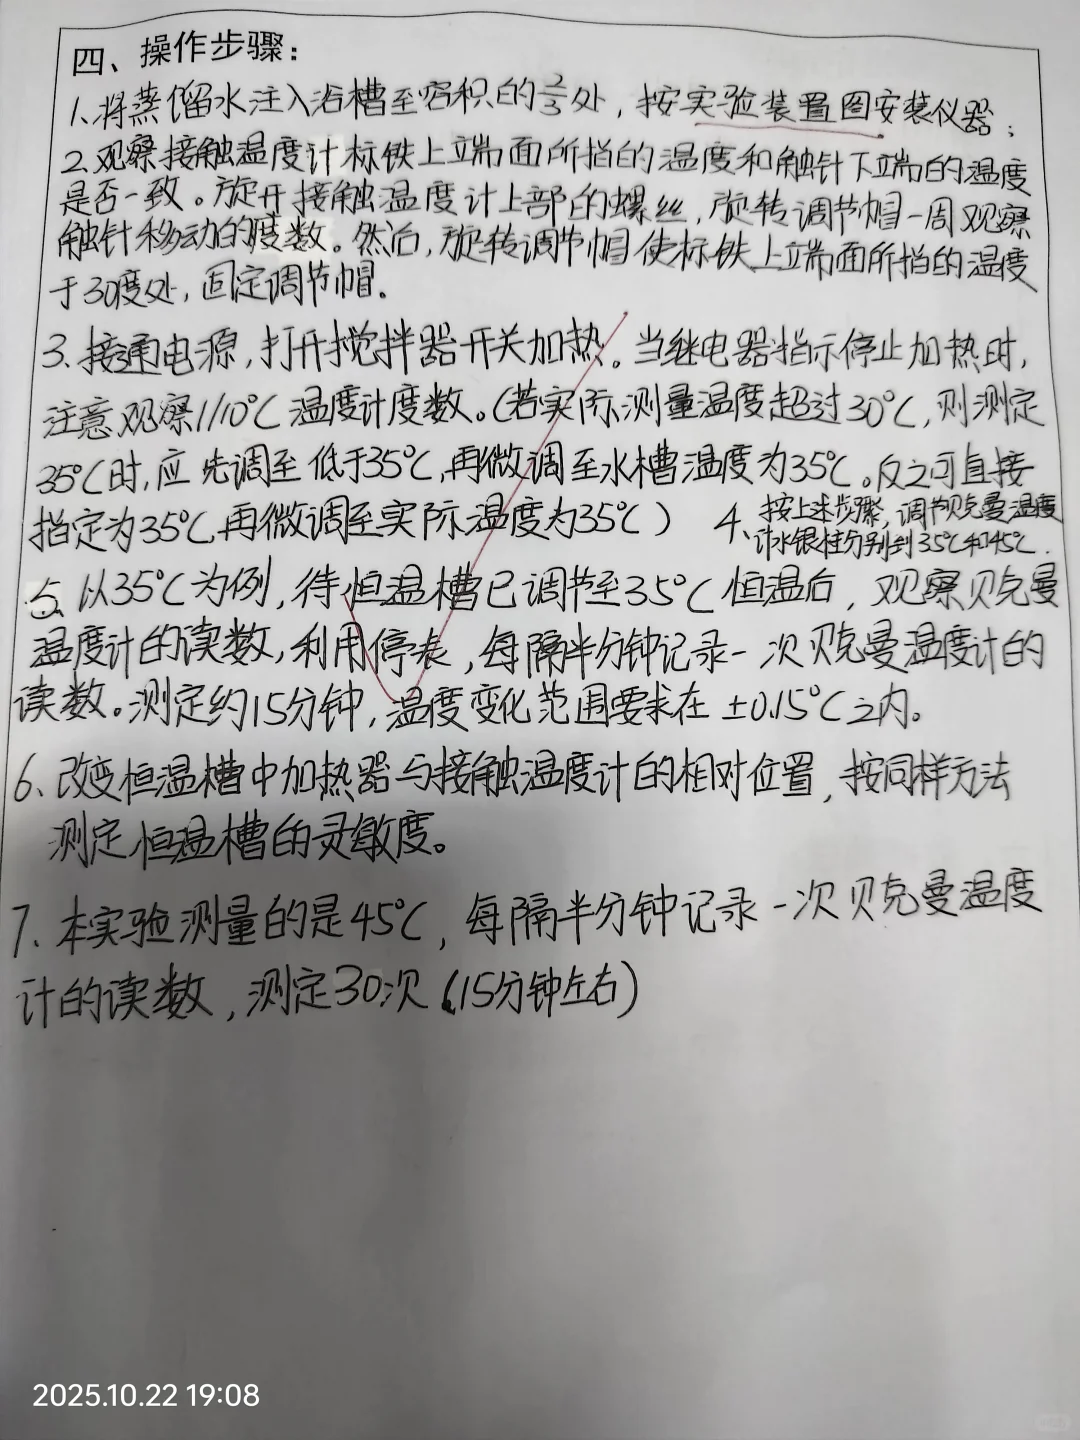 四、操作步骤：
1、将蒸馏水注入浴槽至容积的2/3处，按实验装置图安装仪器；
2、观察接触温度计标铁上端面所指的温度和触针下端的温度
是否一致。旋开接触温度计上部的螺丝，旋转调节帽一周观察
触针移动的度数。然后，旋转调节帽使标铁上端面所指的温度
于30度处，固定调节帽。
3、接通电源，打开搅拌器开关加热。当继电器指示停止加热时，
注意观察1/10℃温度计度数。（若实际测量温度超过30℃，则测定
35℃时，应先调至低于35℃，再微调至水槽温度为35℃。反之可直接
指定为35℃，再微调至实际温度为35℃）
4、按上述步骤，调节贝克曼温度
计水银柱分别到35℃和45℃．
5、以35℃为例，待恒温槽已调节至35℃恒温后，观察贝克曼
温度计的读数，利用停表，每隔半分钟记录一次贝克曼温度计的
读数。测定约15分钟，温度变化范围要求在±0.15℃之内。
6、改变恒温槽中加热器与接触温度计的相对位置，按同样方法
测定恒温槽的灵敏度。
7、本实验测量的是45℃，每隔半分钟记录一次贝克曼温度
计的读数，测定30次（15分钟左右）
2025.10.22 19:08